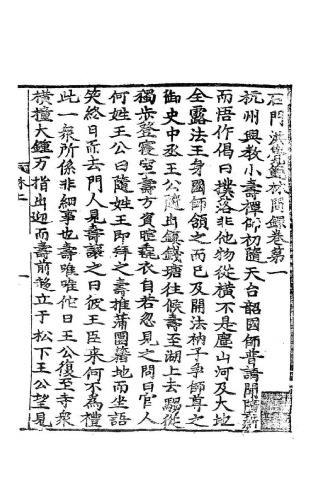 石門洪覺範林間錄卷第一
杭州興教小壽禪師初隨天台韶國師普請聞墮薪
而悟作偈曰撲落非他物從橫不是塵山河及大地
全露法王身國師頷之而已及開法衲子爭師尊之
御史中丞王公隨出鎮錢塘往候壽至湖上去騶從
獨步登寢室壽方負暄毳衣自若忽見之問曰官人
何姓王公曰隨姓王即拜之壽推蒲團藉地而坐語
笑終日而去門人見壽讓之曰彼王臣來何不為禮
此一眾所係非細事也壽唯唯佗日王公復至寺眾
橫撞大鍾万指出迎而壽前趍立于松下王公望見